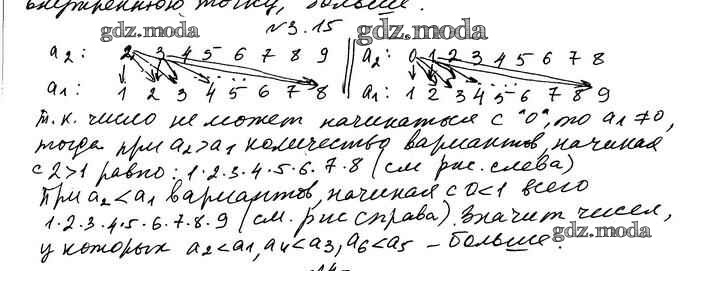 внутреннюю точку, больше.
№3.15
gdz.moda
gdz.moda
a₂: 2 3 4 5 6 7 8 9 a₂: 0 1 2 3 4 5 6 7 8
a₁: 1 2 3 4 5 6 7 8 a₁: 1 2 3 4 5 6 7 8 9
т.к. число не может начинаться с "0", то a₁≠0,
тогда при a₂>a₁ количество вариантов, начиная
с 2>1 равно: 1·2·3·4·5·6·7·8 (см рис. слева)
При a₂<a₁ вариантов, начиная с 0<1 всего
1·2·3·4·5·6·7·8·9 (см. рис справа). Значит чисел,
у которых a₂<a₁, a₄<a₃, a₆<a₅ – больше.
gdz.moda